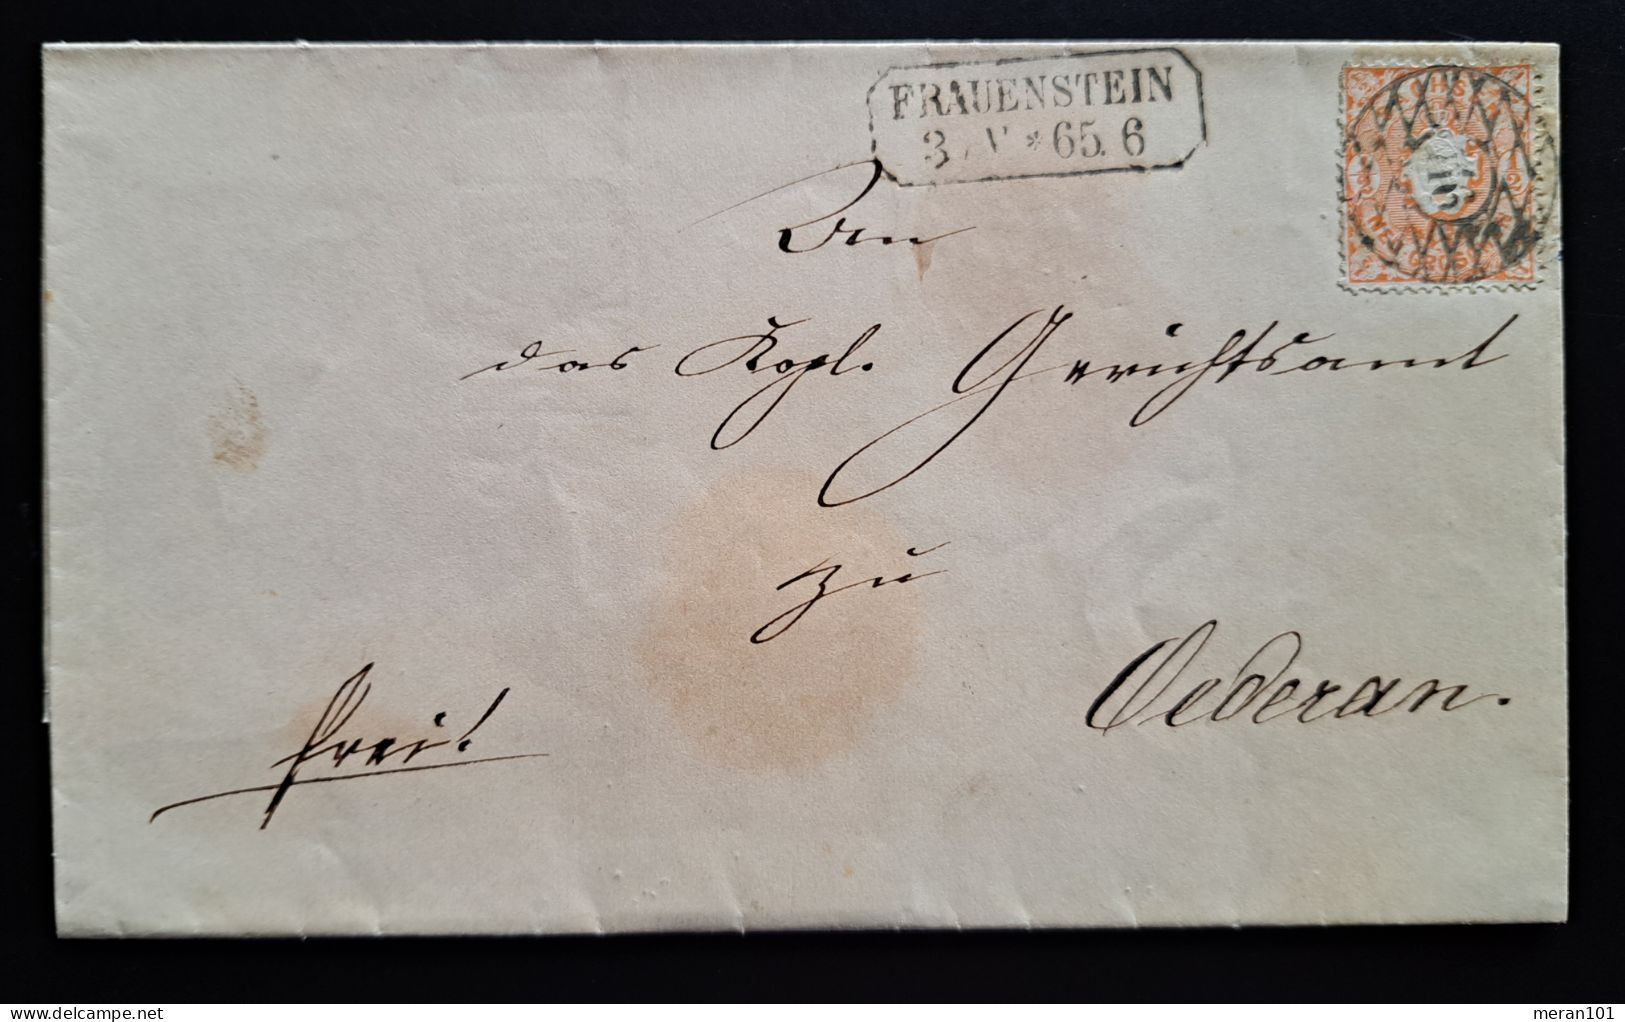 FRAUENSTEIN
3 * 65. 6
NEU
An
das Kgl. Gerichtsamt
zu
Oederan.
frei!
delcampe.net
meran101